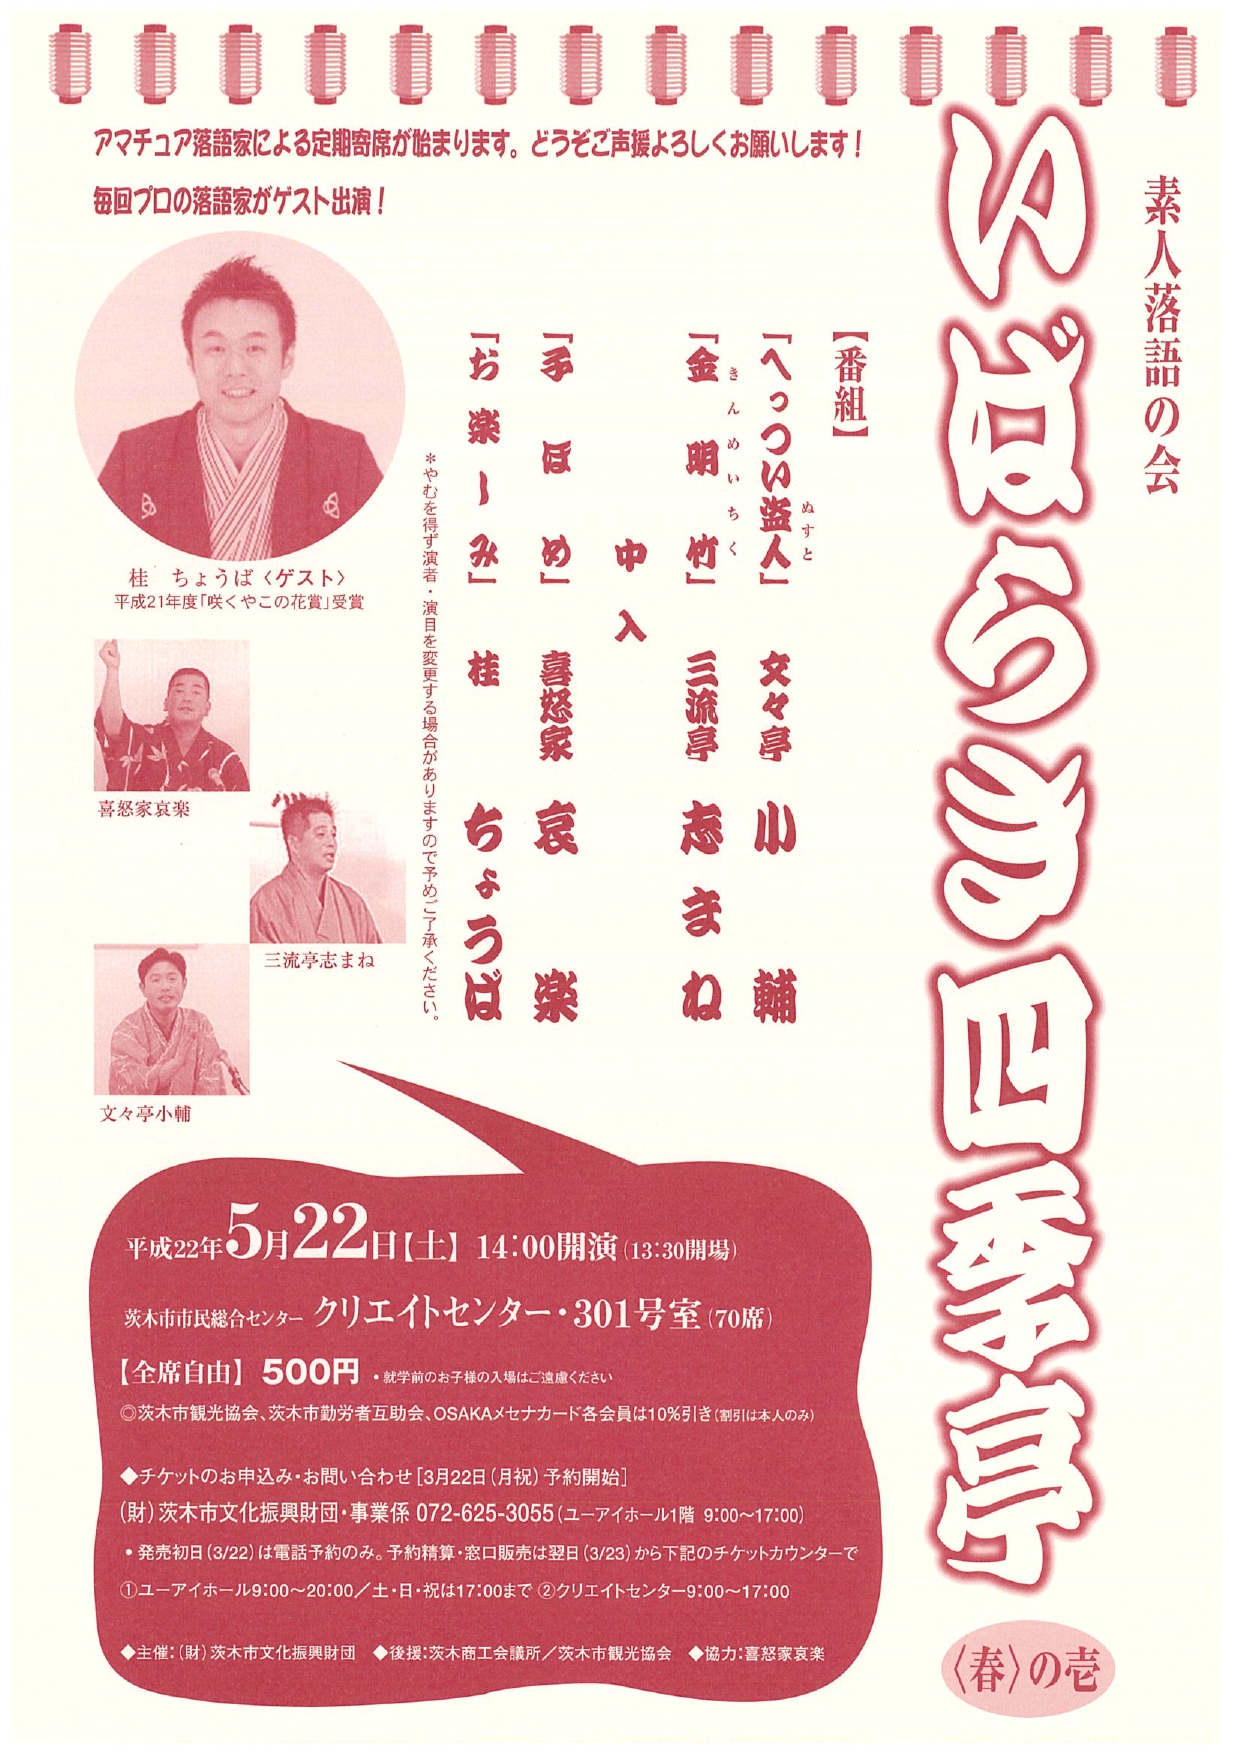 素人落語の会
いばらき四季亭
〈春〉の壱
アマチュア落語家による定期寄席が始まります。どうぞご声援よろしくお願いします！
毎回プロの落語家がゲスト出演！
【番組】
「へっつい盗人」 文々亭 小輔
ぬすと
「金明竹」 三流亭 志まね
きんめいちく
中入
「手ほめ」 喜怒家 哀楽
「お楽しみ」 桂 ちょうば
＊やむを得ず演者・演目を変更する場合がありますので予めご了承ください。
桂 ちょうば〈ゲスト〉
平成21年度「咲くやこの花賞」受賞
喜怒家哀楽
三流亭志まね
文々亭小輔
平成22年5月22日【土】 14：00開演（13：30開場）
茨木市市民総合センター クリエイトセンター・301号室（70席）
【全席自由】 500円 ・就学前のお子様の入場はご遠慮ください
◎茨木市観光協会、茨木市勤労者互助会、OSAKAメセナカード各会員は10%引き（割引は本人のみ）
◆チケットのお申込み・お問い合わせ［3月22日（月祝）予約開始］
（財）茨木市文化振興財団・事業係 072-625-3055（ユーアイホール1階 9：00〜17：00）
・発売初日（3/22）は電話予約のみ。予約精算・窓口販売は翌日（3/23）から下記のチケットカウンターで
①ユーアイホール9：00〜20：00／土・日・祝は17：00まで ②クリエイトセンター9：00〜17：00
◆主催：（財）茨木市文化振興財団 ◆後援：茨木商工会議所／茨木市観光協会 ◆協力：喜怒家哀楽